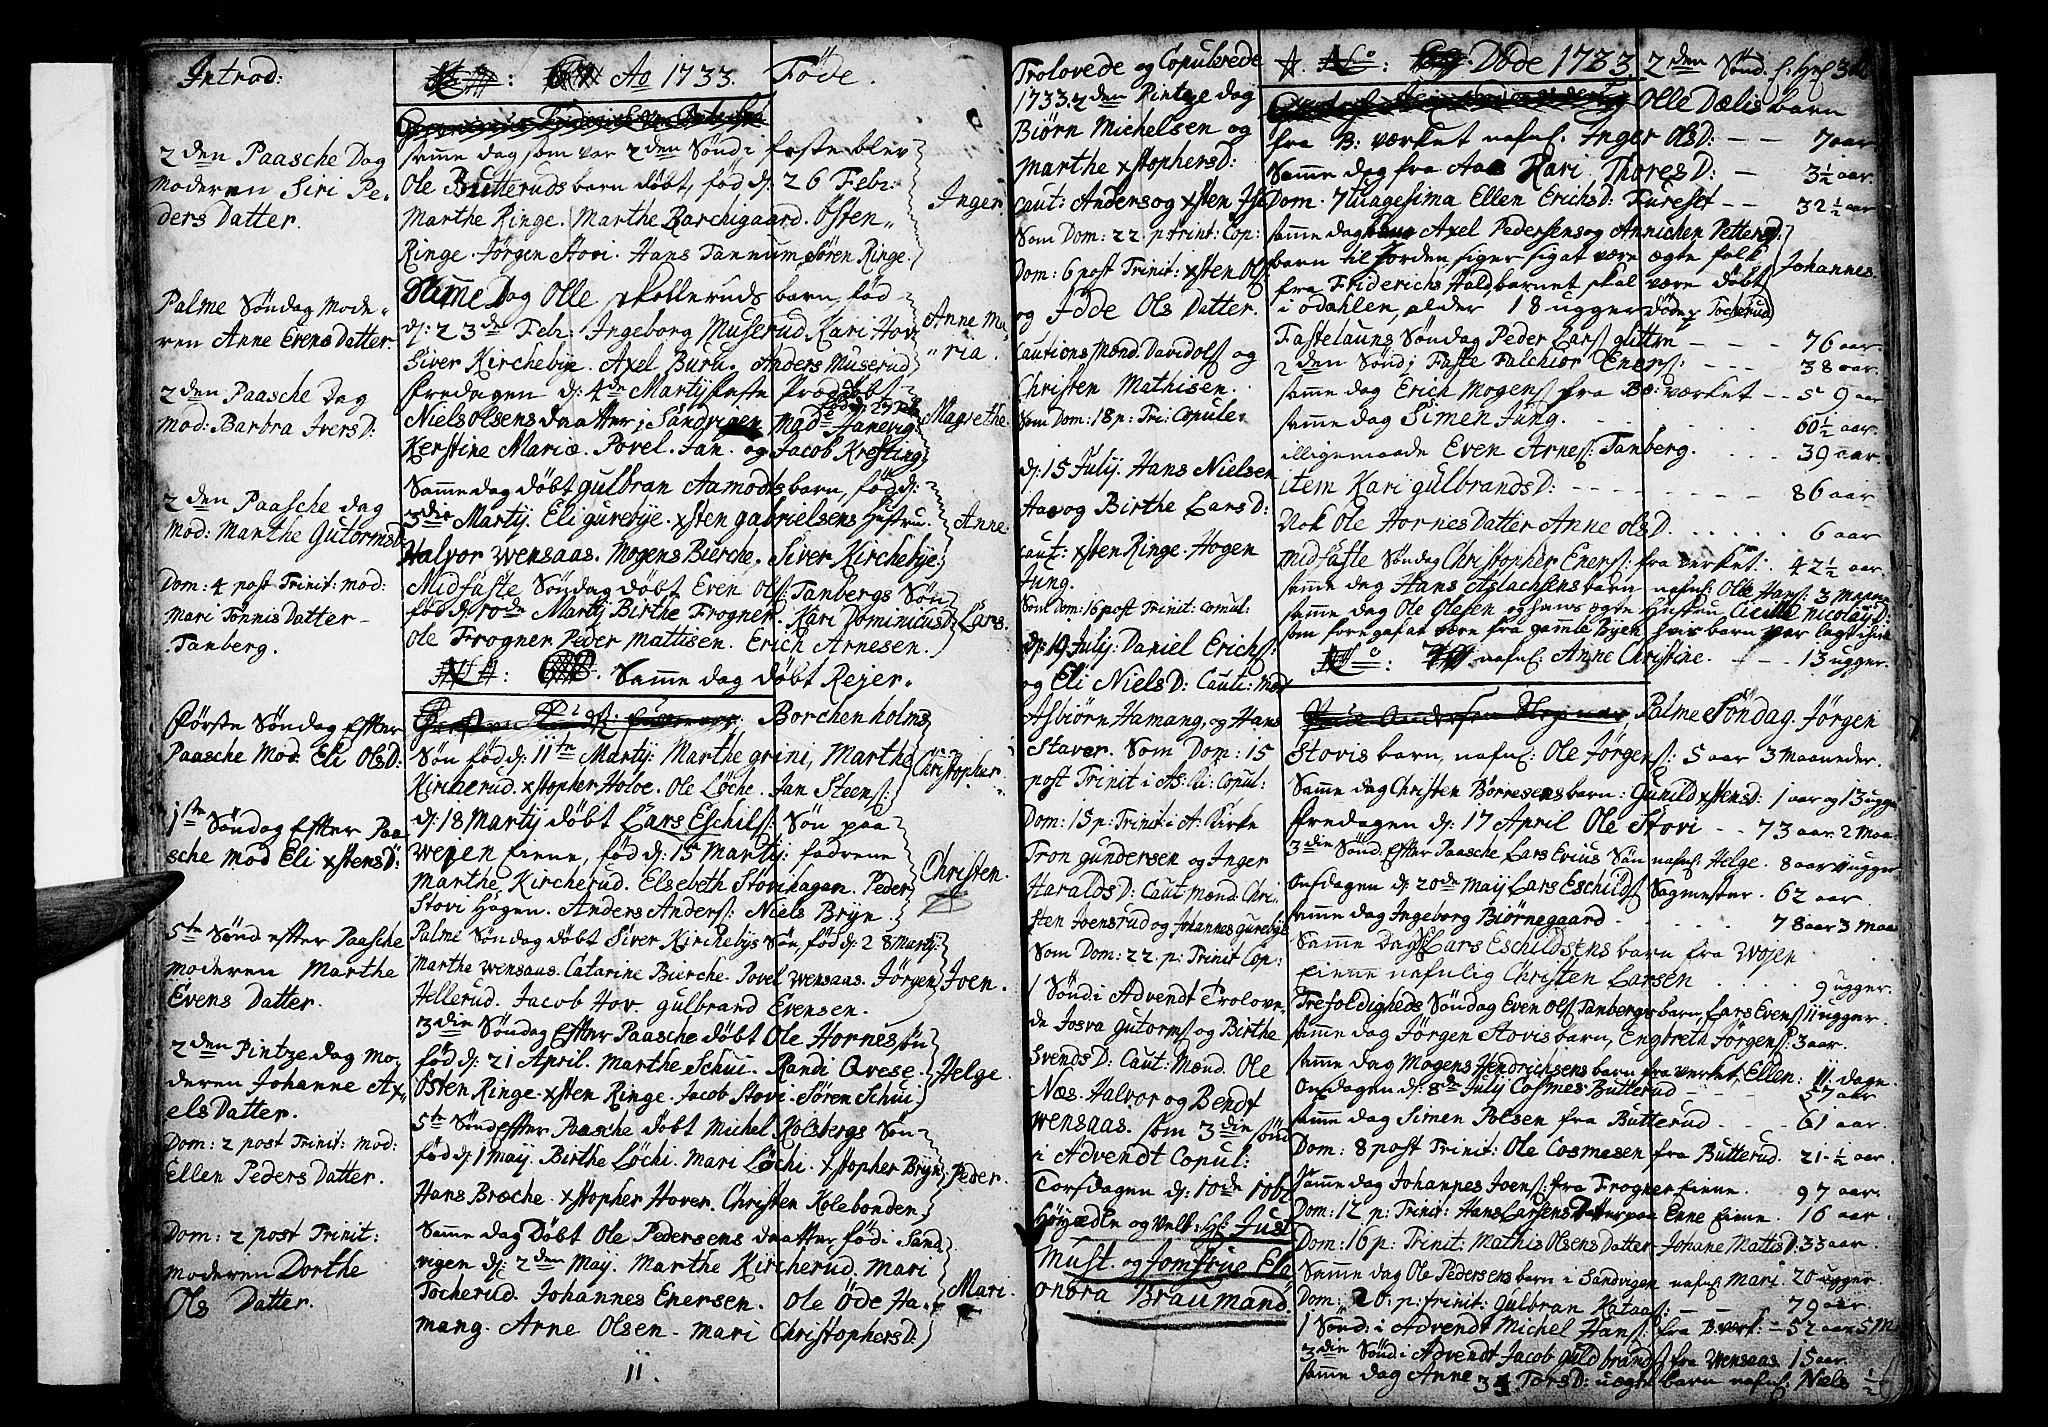 Introd:
2den Paasche Dag
moderen Siri Pe-
ders Datter.
Palme Søndag Mode-
ren Anne Evens Datter.
2den Paasche Dag
mod: Barbra IversD:
2den Paasche dag
mod: Marthe Gutormsd
Dom: 4 post Trinit: mod:
Mari Tønnis Datter-
Tanberg.
første Søndag Efter
Paasche Mod: Eli OlsD:
1ste Søndag Efter Paa
sche mod Eli xstensD:
5te Sønd efter Paasche
moderen Marthe
Evens Datter.
2den Pintze dag Mo,
deren Johanne Ax,
els Datter.
Dom: 2 post Trinit: mod:
Ellen Peders Datter.
Dom: 2 post Trinit:
moderen Dorthe
Ols Datter.
Ao 1733. Føde.
samme dag som var 2den Sønd i faste blev
Ole Butteruds barn døbt, fød d: 26 Febr:
Marthe Ringe. Marthe Borchigaard. Østen
Ringe. Jørgen Stovi. Hans Tannum Søren Ringe.
Inger.
Samme Dag Olle Skolleruds barn, fød
d: 23de Feb: Ingeborg Muserud, Kari Hov
Siver Kirchebye. Axel Buru, Anders Muserud
Anne Ma-
ria.
fredagen d: 4de Martij faste Præd: døbt
Niels olsens daatter i Sandvigen mad:
Kerstine Maria. Povel. Jan. og Jacob Kresting
Magrethe.
Samme dag døbt gulbran Aamodts barn, fød d:
3die Martij. Eli gurebye. xsten gabrielsens Hustru.
Halvor Wensaas. Mogens Bierche. Siver Kirchebye
Anne.
Midfaste Søndag døbt Even Ols: Tanbergs Søn
fød d: 10de Martij Birthe Frogner. Kari DominicusD
Ole Frogner Peder Mattisen. Erich Arnesen.
Lars.
Samme dag døbt Rejer.
Borchenholms
Søn fød d: 11te Martij: Marthe grini, Marthe
Kircherud. xstopher Holve. Ole Løche. Jan Steens:
Christopher.
d: 18 Martij døbt Lars Eschils: Søn paa
Wejen Eiene, fød d: 15 Martij: fadrene
Marthe Kircherud. Elsebeth Stovihagen. Peder
Stovi Hagen. Anders Anders: Niels Bryn.
Christen.
Palme Søndag døbt Siver Kirchebys Søn, fød d: 28 Martij
Marthe Wensaas. Catarine Bierche. Povel Wensaas. Jørgen
Hellerud. Jacob Hov. gulbrand Evensen.
Joen.
3die Søndag Efter Paasche døbt Ole Hornes søn
fød d: 21 April. Marthe Schui. Randi Qvese.
Østen Ringe. xsten Ringe. Jacob Stovi. Søren Schui.
Helge
5te Sønd Efter Paasche døbt Michel Kolsbergs Søn
fød d: 1 Maij. Birthe Løchi. Mari Løchi. xstopher Bryn
Hans Bræche. xstopher Hover. Christen Kolebonden
Peder.
Samme dag Døbt Ole Pedersens daatter fød i Sand
vigen d: 2den Maij. Marthe Kircherud. Mari
Tocherud. Johannes Enersen. Ole Øde Ha-
mang. Arne Olsen. Mari ChristophersD:
Mari.
11.
Trolovede og Copulerede
1733. 2den Pintze dag
Biørn Michelsen og
Marthe xstophersD:
Caut: Anders og xsten
Som Dom: 22. p: Trinit: Cop:
Dom: 6 post Trinit: xsten Ols
og Jøde Ols Datter.
Cautions Mænd. David Ols og
Christen Mathisen.
Som Dom: 18 p: Tri: Copule:
d: 15 July. Hans Nielsen
Aas og Birthe LarsD:
Caut: xsten Ringe. Hogen
Jung.
Som Dom: 16 post Trinit: Copul:
d: 19 July: Daniel Erichs:
og Eli NielsD: Caut: Mæd
Asbiørn Hamang, og Hans
Staver. Som Dom: 15
post Trinit i As: Ki: Copul:
Dom: 15 p: Trinit: i A: Kirke
Tron gundersen og Inger
HaraldsD: Caut: Mænd. Chri-
sten Joensrud og Johannes gurebye
Som Dom: 22. p: Trinit Cop:
1 Sønd: i Advendt Trolove-
de Josva Gutorms og Birthe
SvendsD: Caut: Mænd. Ole
Næs. Halvor og Bendt
Wensaas. som 3die Sønd
i Advendt Copul:
Torsdagen d: 10de 10br
Høyædle og Velb: Hr: Just
Must. og Jomfrue Ele
onora Braumand.
Døde 1733 2den Sønd
Olle Dælis barn
fra B: værket nafnl: Inger OlsD: - - 7 aar
Samme dag fra Aas Kari ThoresD: - 3½ aar.
Dom. 7tuagesima Ellen ErichsD: Fureset - - 32½ aar
samme dag Axel Pedersens og Annichen PettersD:
barn til jorden siger sig at være ægte folk
fra Friderichs Hald, barnet skal være døbt
i Odahlen, alder 18 ugger døde i Tocherud
Johannes.
Fastelauns Søndag Peder Lars glitte - - - 76 aar.
2den Sønd i Faste Falchior Eners: - - - 38 aar.
samme dag Erich Mogens fra Be: værket - - 59 aar
samme dag Simen Jung. 60½ aar.
illigemaade Even Arnes: Tanberg. 39 aar.
item Kari gulbrandsD: 86 aar
Nok Ole Hornes Datter Anne olsD. 6 aar
midfaste Søndag Christopher Eners: fra verket. 42½ aar.
samme dag Hans Aslachsens barn nafnl: Olle Hans: 3 maan
samme dag Ole Olesen og hans ægte Hustru Cicilie NicolayD:
som foregaf at være fra gamle Byen hvis barn var lagt i kirk
nafnl: Anne Christine. - - - 13 ugger.
Palme Søndag. Jørgen
Stovis barn, nafnl: Ole Jørgens: 5 aar 3 Maaneder.
Samme dag Christen Børresens barn: Gunild xstensD: 1 aar og 13 ugger
fredagen d: 17 April Ole Stovi - - 73 aar 2 Maa
3die Sønd. Efter Paasche Lars Evius Søn nafnl: Helge. 8 aar
Onsdagen d: 20de Maij Lars Eschilds Sagmester. 62 aar.
samme dag Ingeborg Biørnegaard. 78 aar 3 maa
Samme Dag Lars Eschildsens barn fra Wojen
Eiene nafnlig Christen Larsen 9 ugger.
Trefoldigheds Søndag Even Ols Tanbergs barn, Lars Evens 11 ugger.
samme dag Jørgen Stovis barn, Engbreth Jørgens: 3 aar.
samme dag Mogens Hendrichsens barn fra verket, Ellen: 11 dage.
Onsdagen d: 8de July Cosmes Butterud - - 57 aar
samme dag Simen Polsen fra Butterud - - - 61 aar
Dom: 8 post Trinit: Ole Cosmesen fra Butterud. 21-½ aar.
Samme dag Johannes Joens: fra Frogner Eiene. 97 aar.
Dom: 12 p: Trinit: Hans Larsens Datter paa Enne Eiene. 16 aar.
Dom: 16 p: Trinit: Mathis Olsens Datter Johane MattisD: 33 aar.
Samme dag Ole Pedersens barn i Sandvigen nafnl: Mari. 20 ugger
Dom: 20. p: trinit: Gulbran Kataas: - - 79 aar.
1 Sønd: i Advendt Michel Hans: fra B: værk: - 52 aar 5 M
3die Sønd i Advendt Jacob Guldbrands: fra Wensaas 15 aar.
samme dag Anne TorsD: uægte barn nafnl: Niels ½